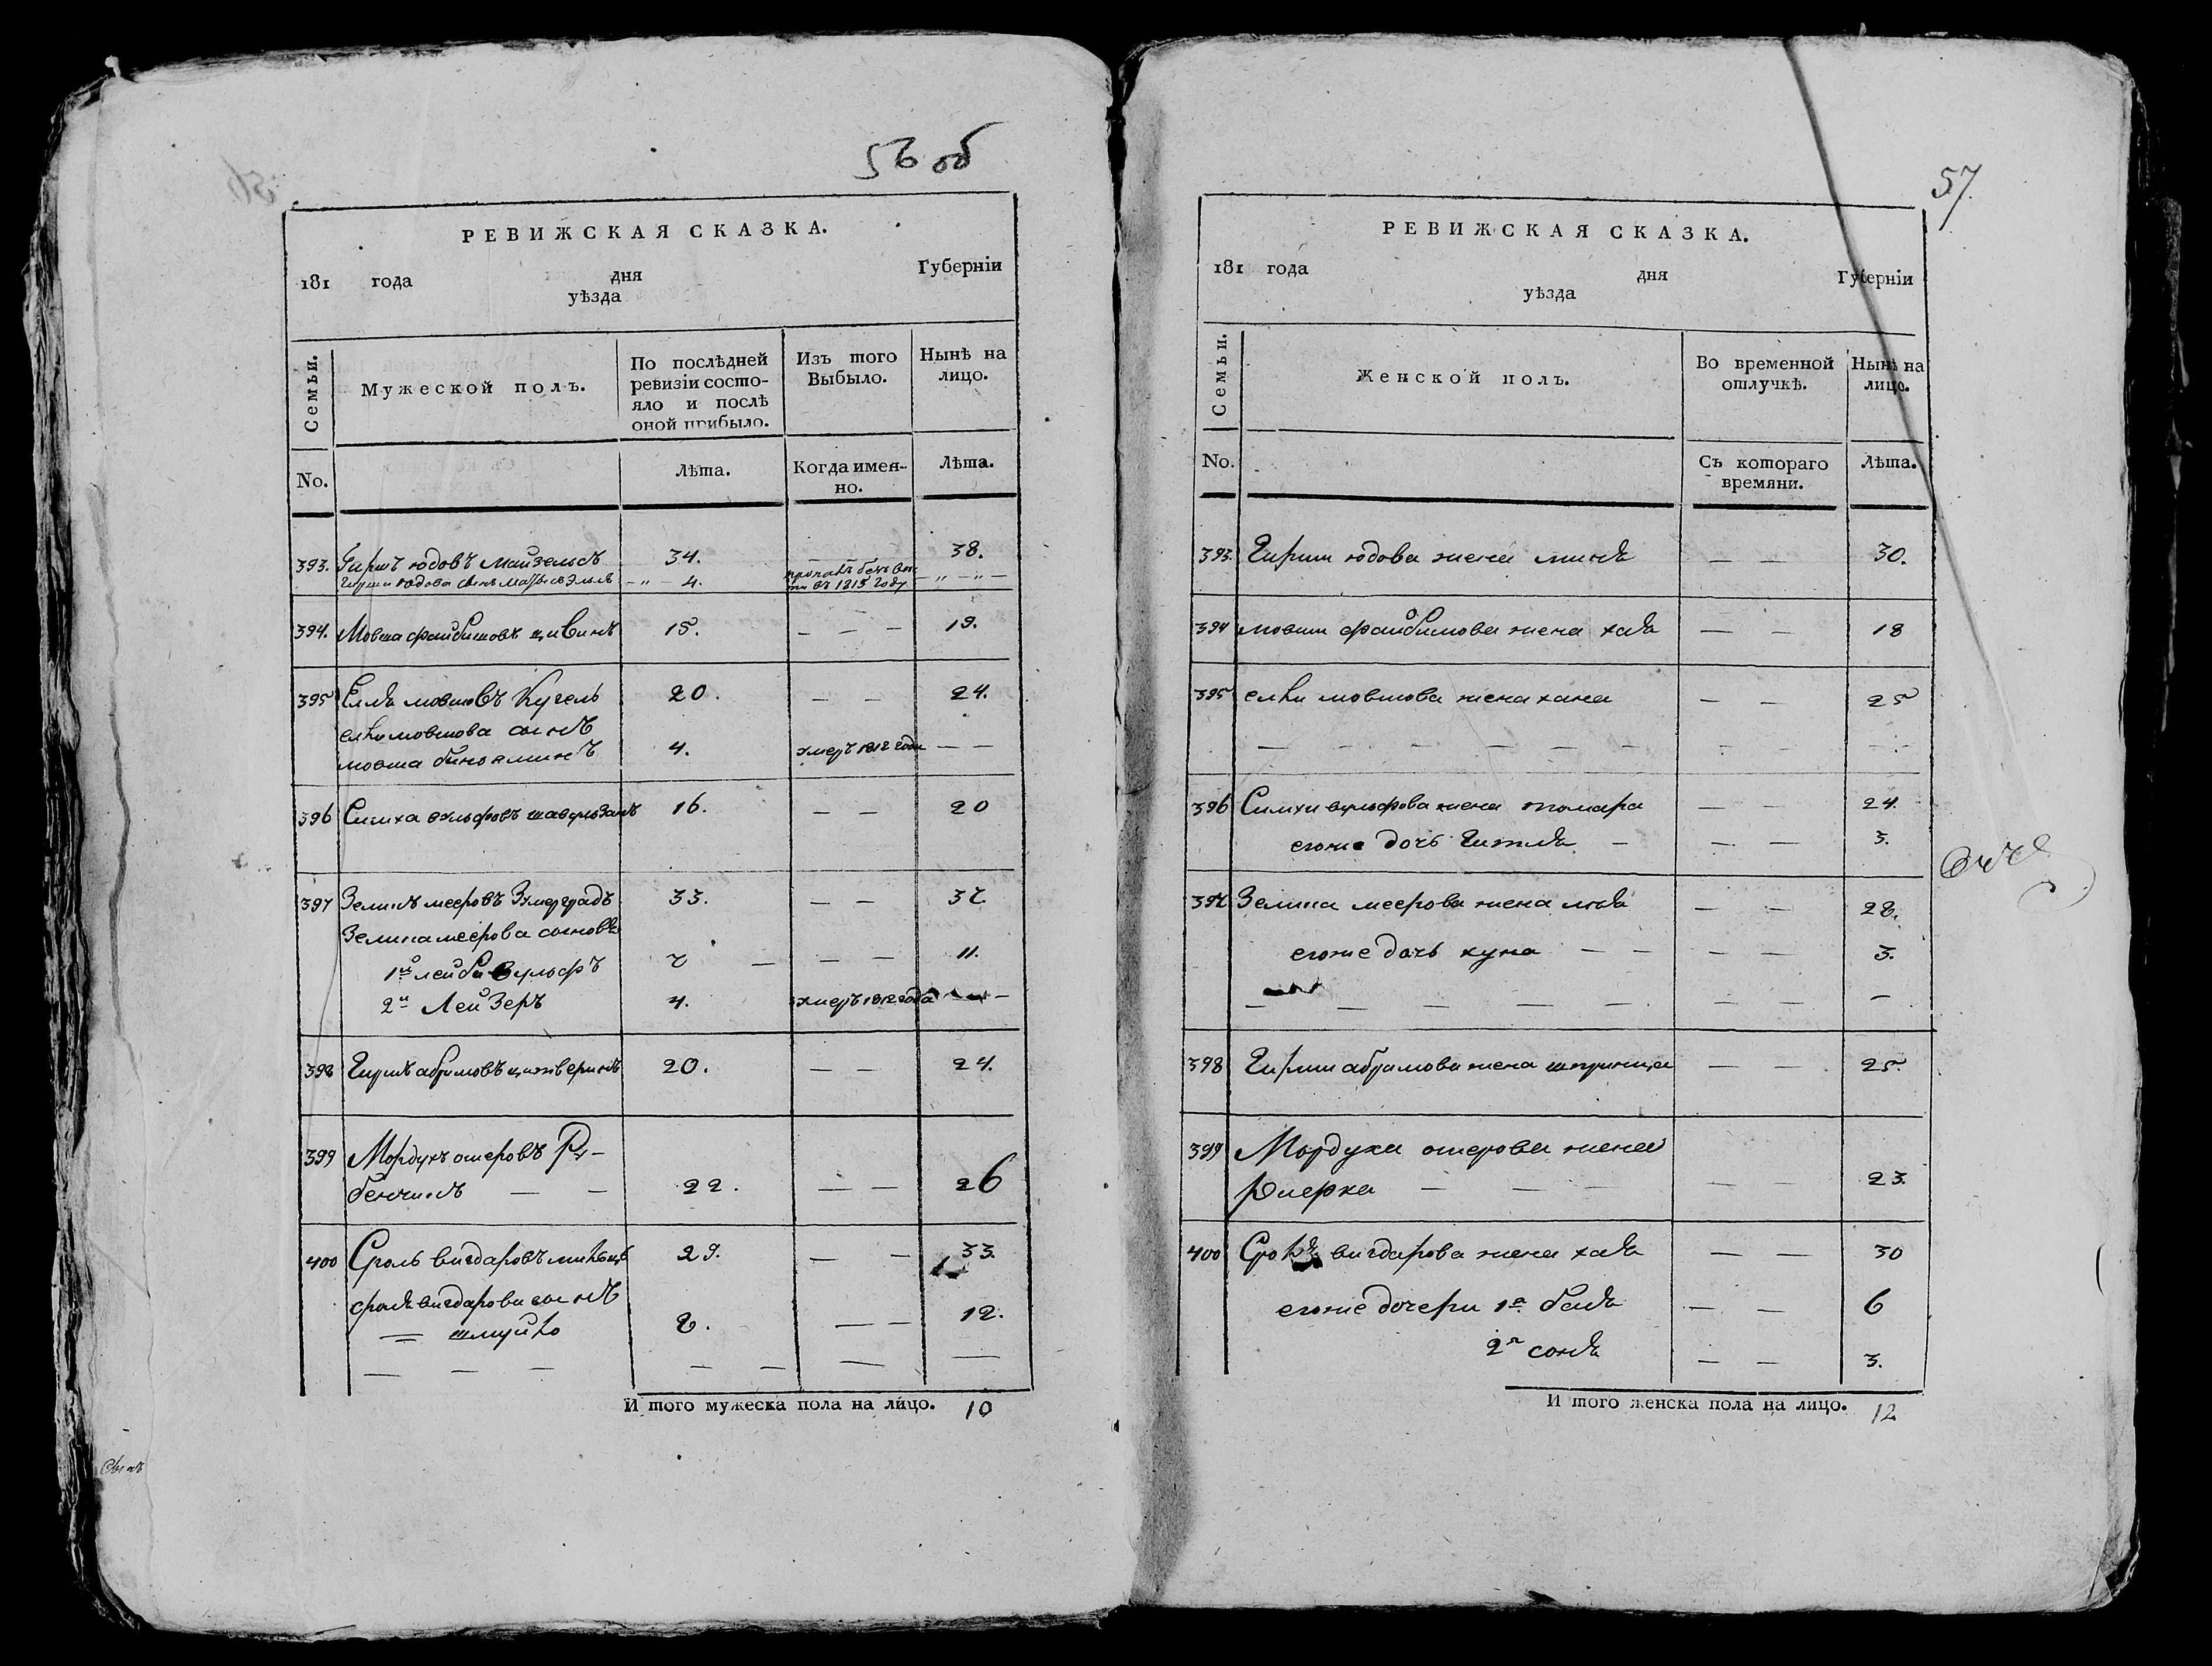 56 об
РЕВИЖСКАЯ СКАЗКА.
181 года дня Губерніи
уѣзда
Семьи. Мужеской полъ. По послѣдней ревизіи состояло и послѣ оной прибыло. Изъ того Выбыло. Нынѣ на лицо.
No. Лѣта. Когда именно. Лѣта.
393. Гиршъ юдовъ майзельсъ 34. — — 38.
Гирши юдова сынъ 4. в 1813 году — „ — „ —
394. Мовша файбишовъ цивинъ 15. — — — 19.
395 Елья мовшовъ Кугель 20. — — 24.
елки мовшова сынъ
мовша биноминъ 4. умеръ 1812 года — —
396 Симха вульфовъ 16. — — 20
397 Зелинъ мееровъ 33. — — 37.
Зелина меерова сыновья
1й лейба вульфъ 7 — — — 11.
2й Лейзеръ 4. умеръ 1812 года — —
398 Гиршъ абрамовъ 20. — — 24.
399 Мордухъ ошеровъ Ру-
бенчикъ — — 22. — — 26
400 Сроль вигдаровъ 29. — — 33.
сроля вигдарова сынъ
— шмуйло 8. — — 12.
— — — — — — —
И того мужеска пола на лицо. 10
57
РЕВИЖСКАЯ СКАЗКА.
181 года дня Губерніи
уѣзда
Семьи. Женской полъ. Во временной отлучкѣ. Нынѣ на лицо.
No. Съ котораго времяни. Лѣта.
393. Гирши юдова жена миня — — 30.
394 мовши файбишова жена хая — — 18
395 елки мовшова жена хана — — 25
— — — — — — — —
396 Симхи вульфова жена тамара — — 24.
егоже дочь Гитля — — — 3.
397 Зелина меерова жена — — 28.
егоже дочь хуна — — — — 3.
— — — — — — —
398 Гирши абрамова жена шпринца — — 25
399 Мордуха ошерова жена
Дверка — — — — — 23.
400 вигдарова жена хая — — 30
егоже дочери 1я беля — — 6
2я соня — — 3.
И того женска пола на лицо. 12